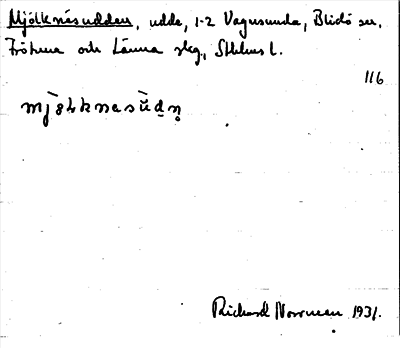 Mjölknäsudden, udde, 1-2 Vagnsunda, Blidö sn,
Frötuna och Länna skg., Sthlms l.
116
Richard Norrman 1931.